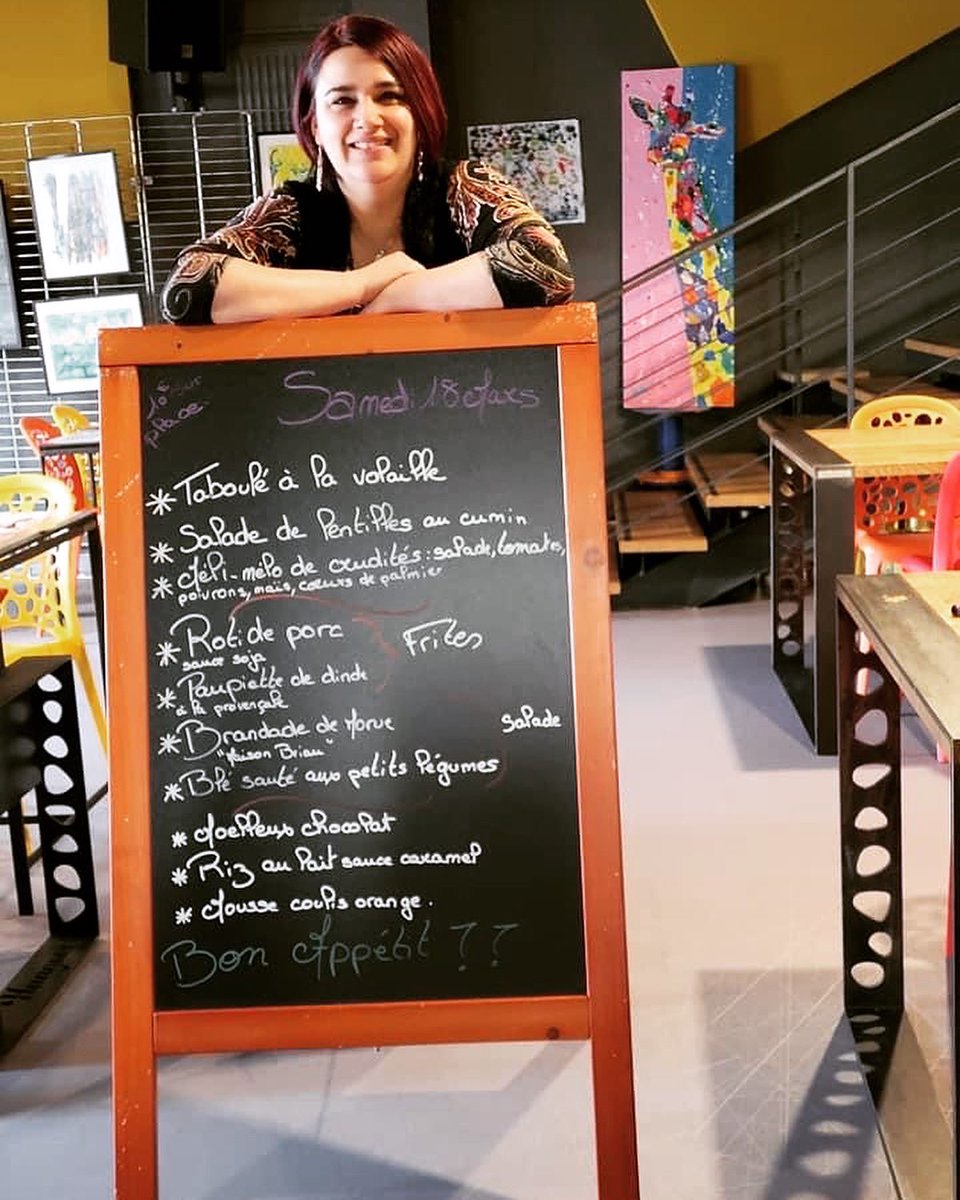 10€ sur
place.
Samedi 18 Mars
* Taboulé à la volaille
* Salade de lentilles au cumin
* Méli-mélo de crudités: salade, tomates,
poivrons, maïs, cœurs de palmier
* Roti de porc
sauce soja
Frites
* Paupiette de dinde
à la provençale
* Brandade de Morue
"Maison Briau"
Salade
* Blé sauté aux petits légumes
* Moelleux chocolat
* Riz au lait sauce caramel
* Mousse coulis orange.
Bon Appétit ??